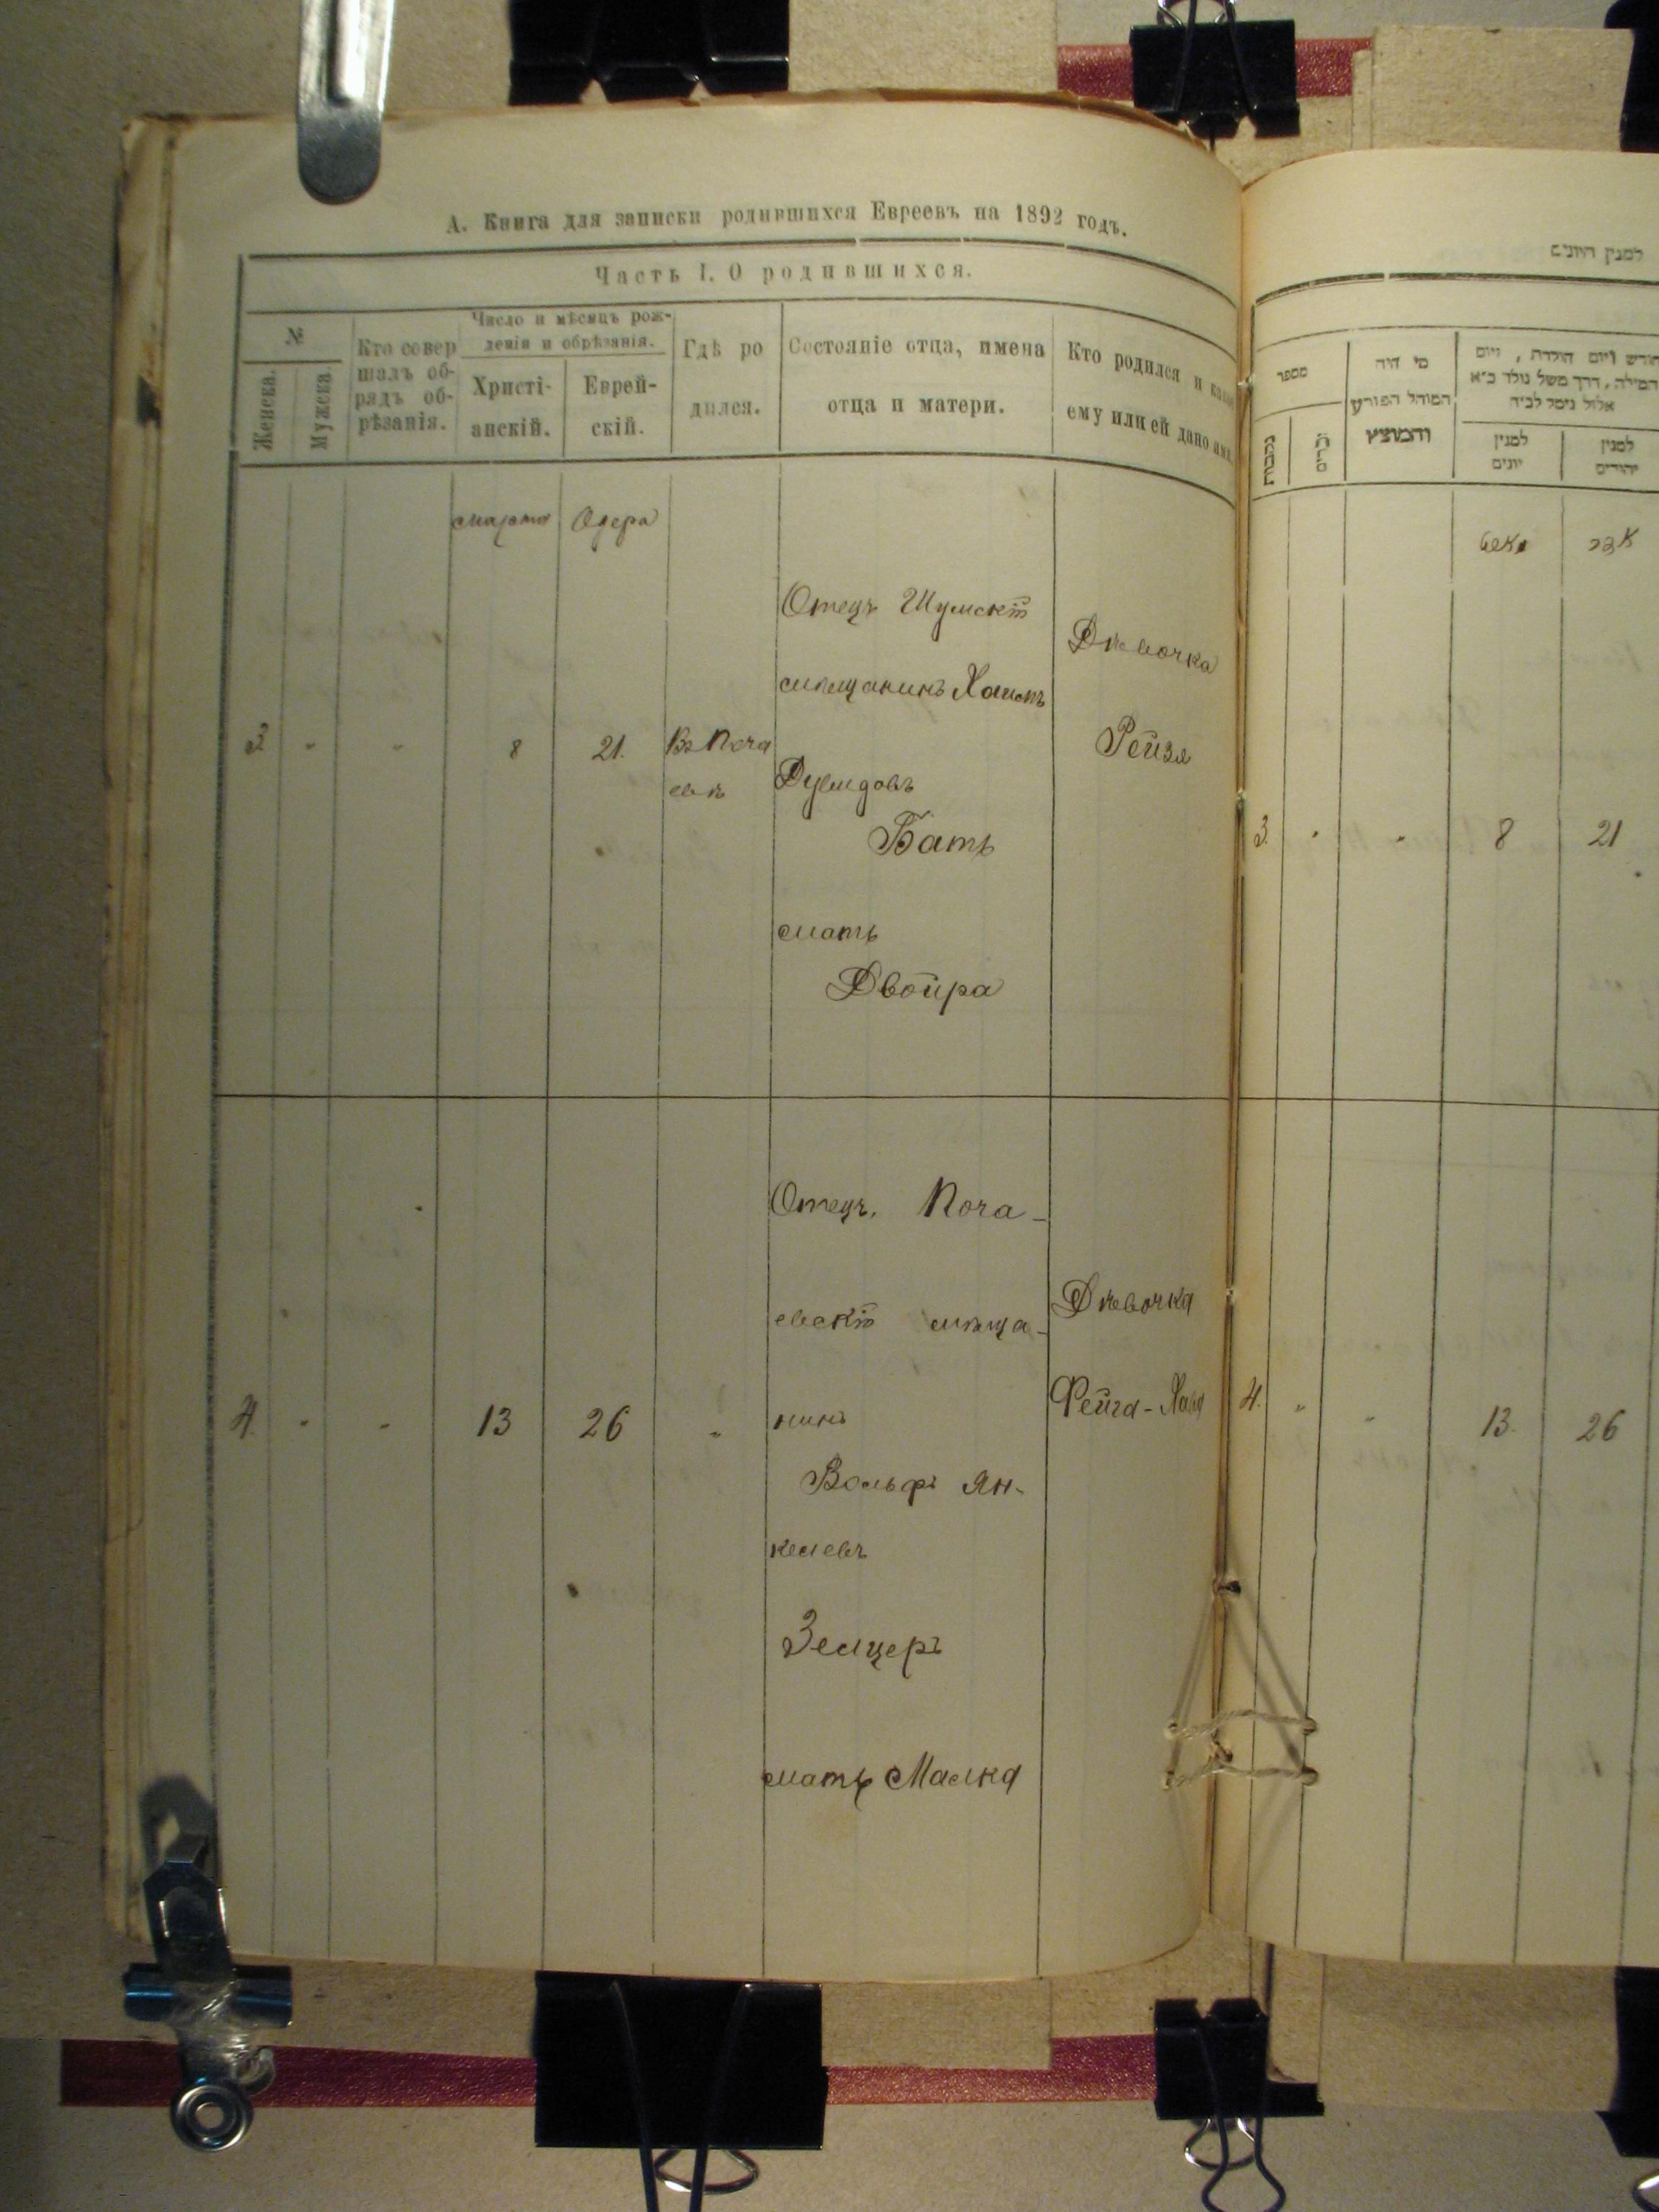 А. Книга для записки родившихся Евреевъ на 1892 годъ.
Часть I. О родившихся.
№
Женска.
Мужска.
Кто совер
шалъ об-
рядъ об-
рѣзанія.
Число и мѣсяцъ рож-
денія и обрѣзанія.
Христі-
анскій.
Еврей-
скій.
Гдѣ ро
дился.
Состояніе отца, имена
отца и матери.
Кто родился и какое
ему или ей дано имя.
марта Одера
3 " " 8 21.
Въ Поча
евѣ
Отецъ Шумскій
мѣщанинъ Хаимъ
Дувидовъ
Батъ
мать
Двойра
Дѣвочка
Рейзя
4. " " 13 26 "
Отецъ, Поча-
евскій мѣща-
нинъ
Вольфъ Ян-
келевъ
Зелцеръ
мать Малка
Дѣвочка
Фейга-Хая
למנין היונים
מספר
נקבות
זכרים
מי היה
המוהל הפורע
והמוצץ
חודש ויום הולדת, ויום
המילה, דרך משל נולד כ״א
אלול נימל לב״ה
למנין
יונים
למנין
יהודים
אדר
3. " " 8 21
4. " " 13. 26